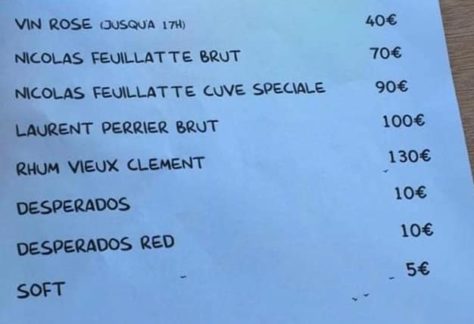 VIN ROSE (JUSQUA 17H) 40€
NICOLAS FEUILLATTE BRUT 70€
NICOLAS FEUILLATTE CUVE SPECIALE 90€
LAURENT PERRIER BRUT 100€
RHUM VIEUX CLEMENT 130€
DESPERADOS 10€
DESPERADOS RED 10€
SOFT 5€